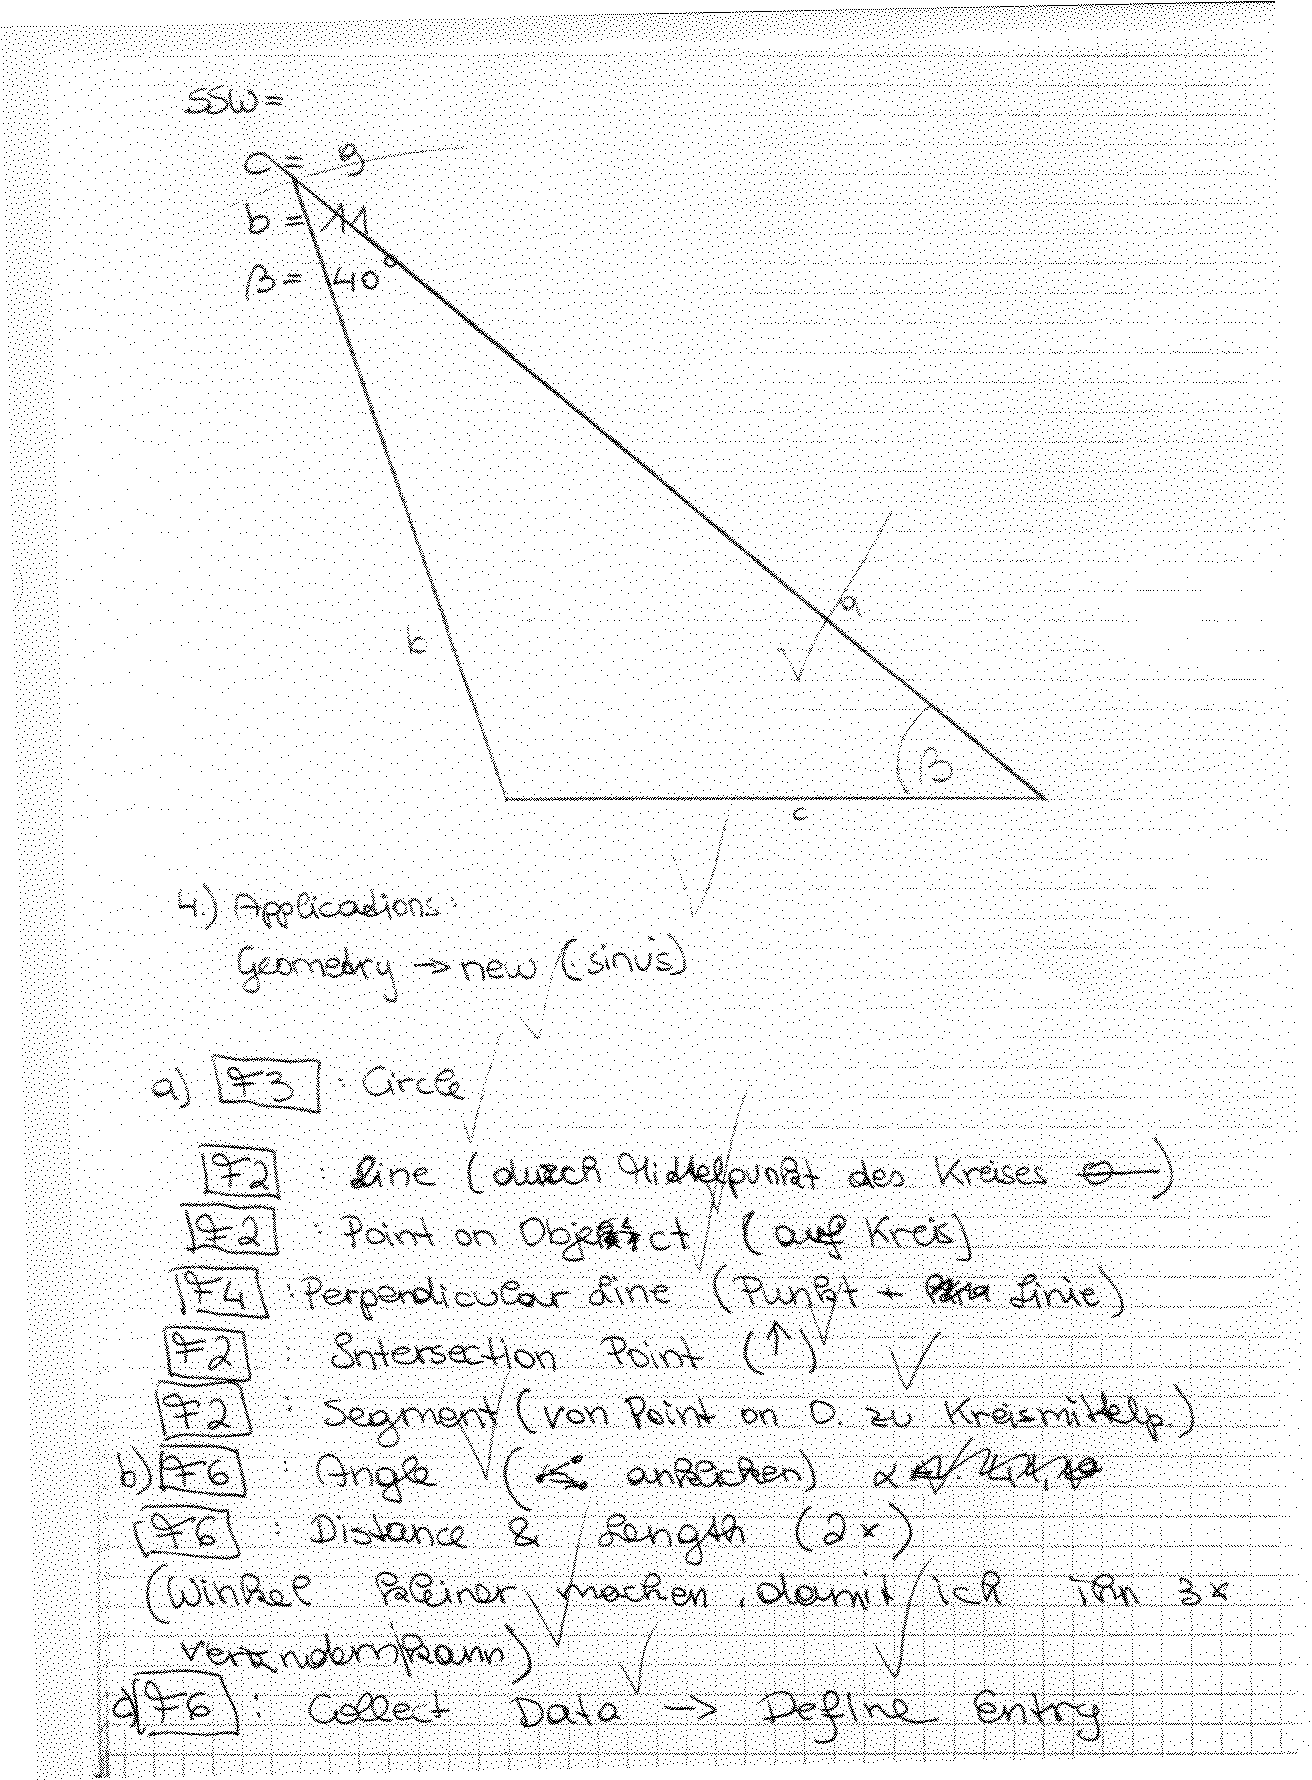 SSW =
c = 9
b = 11
β = 40°
b
a
β
c
4.) Applications:
Geometry → new (sinus)
a) F3 : Circle
F2 : Line (durch Mittelpunkt des Kreises)
F2 : Point on Object (auf Kreis)
F4 : Perpendicular Line (Punkt + Linie)
F2 : Intersection Point (↑)
F2 : Segment (von Point on O. zu Kreismittelp.)
b) F6 : Angle ( anklicken) α
F6 : Distance & Length (2x)
(Winkel kleiner machen, damit ich ihn 3x
verändern kann)
c) F6 : Collect Data → Define Entry